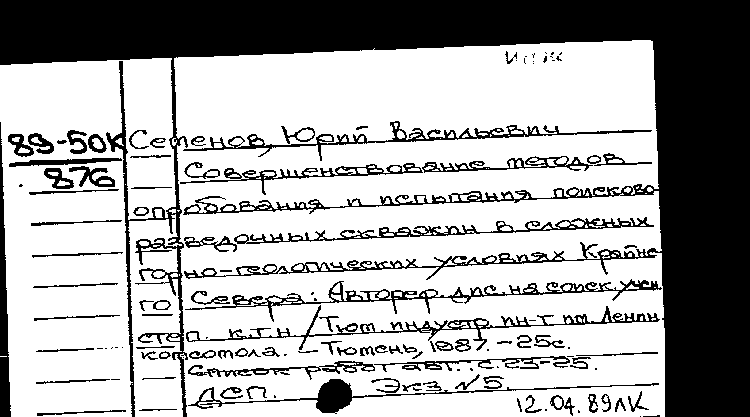 89-50К
876
Семенов, Юрий Васильевич
Совершенствование методов
опробования и испытания поисково-
разведочных скважин в сложных
горно-геологических условиях Крайне-
го Севера: Автореф. дис. на соиск. учен.
степ. к.т.н. / Тюм. индустр. ин-т им. Ленин.
комсомола. – Тюмень, 1987. – 25с.
Список работ авт.: с. 23-25.
ДСП. Экз. №5.
12.04.89ЛК